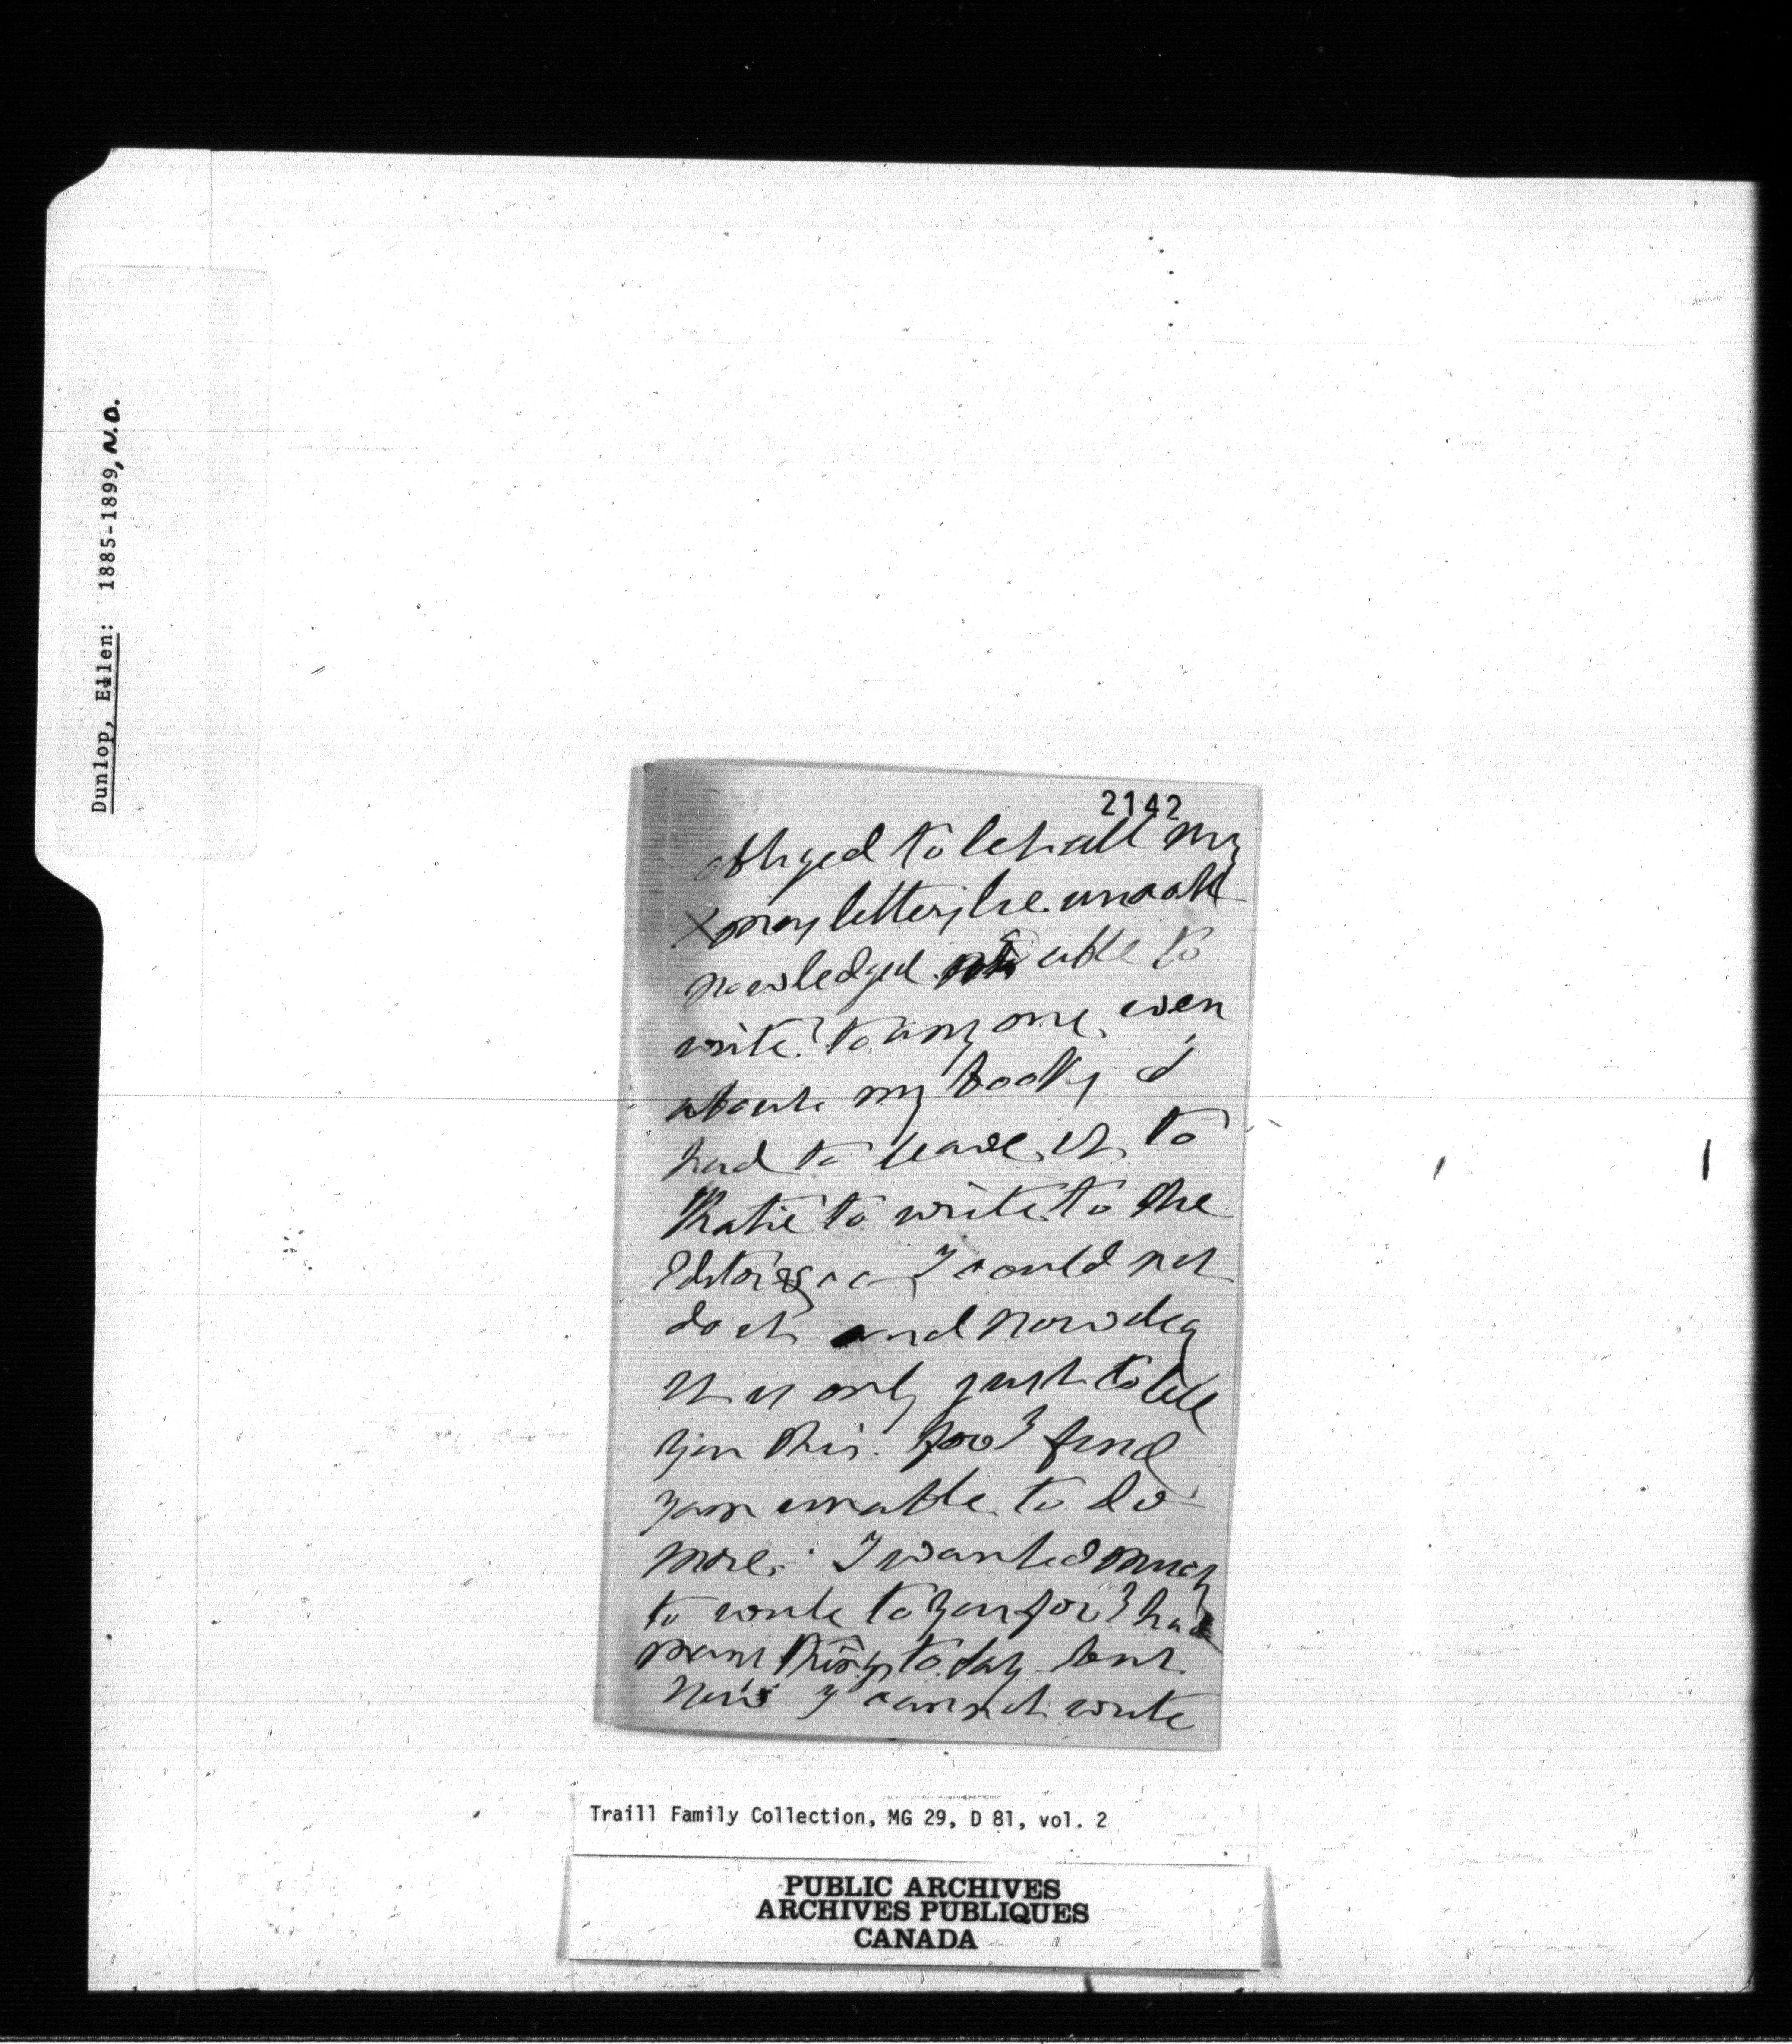 Dunlop, Ellen: 1885-1899, N.D.
2142
obliged to let all my
Xmas letters be unack
nowledged not able to
write to any one even
about my books I
had to leave it to
Katie to write to the
Editors as I could not
do it and now dear
it is only just to tell
you this for I find
I am unable to do
more. I wanted much
to write to you for I had
many things to say but
now I cannot write
Traill Family Collection, MG 29, D 81, vol. 2
PUBLIC ARCHIVES
ARCHIVES PUBLIQUES
CANADA